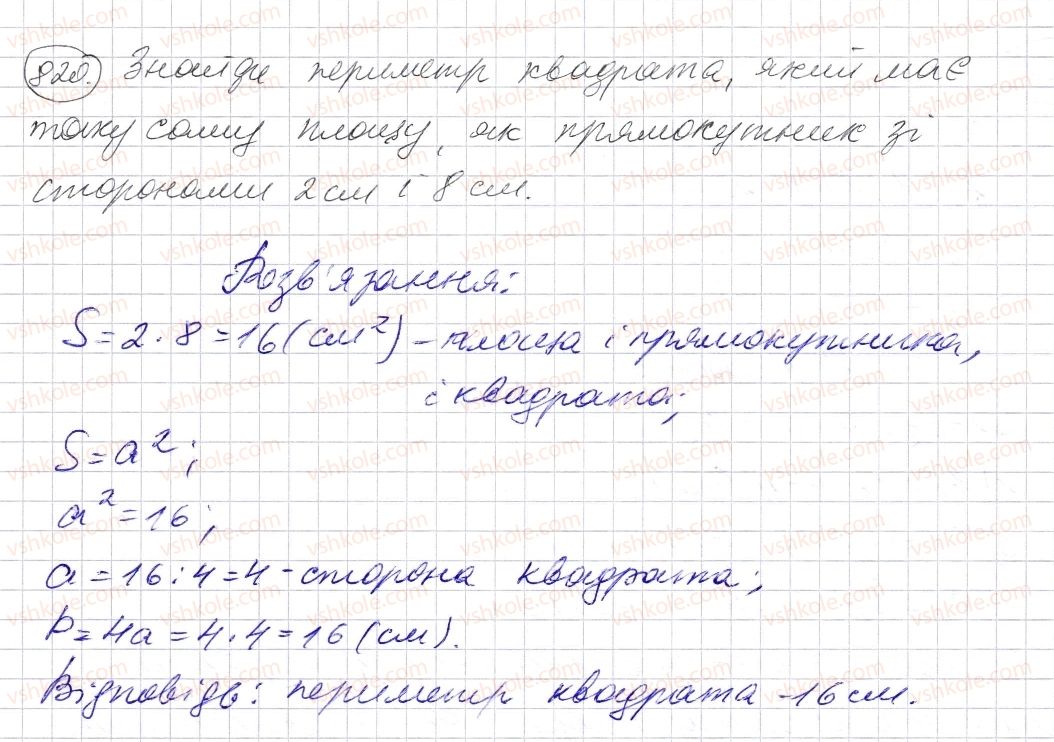 820. Знайди периметр квадрата, який має
таку саму площу, як прямокутник зі
сторонами 2 см і 8 см.
Розв'язання:
S = 2 · 8 = 16 (см²) - площа і прямокутника,
і квадрата;
S = a²;
a² = 16;
a = 16 : 4 = 4 - сторона квадрата;
P = 4a = 4 · 4 = 16 (см).
Відповідь: периметр квадрата - 16 см.
vshkole.com